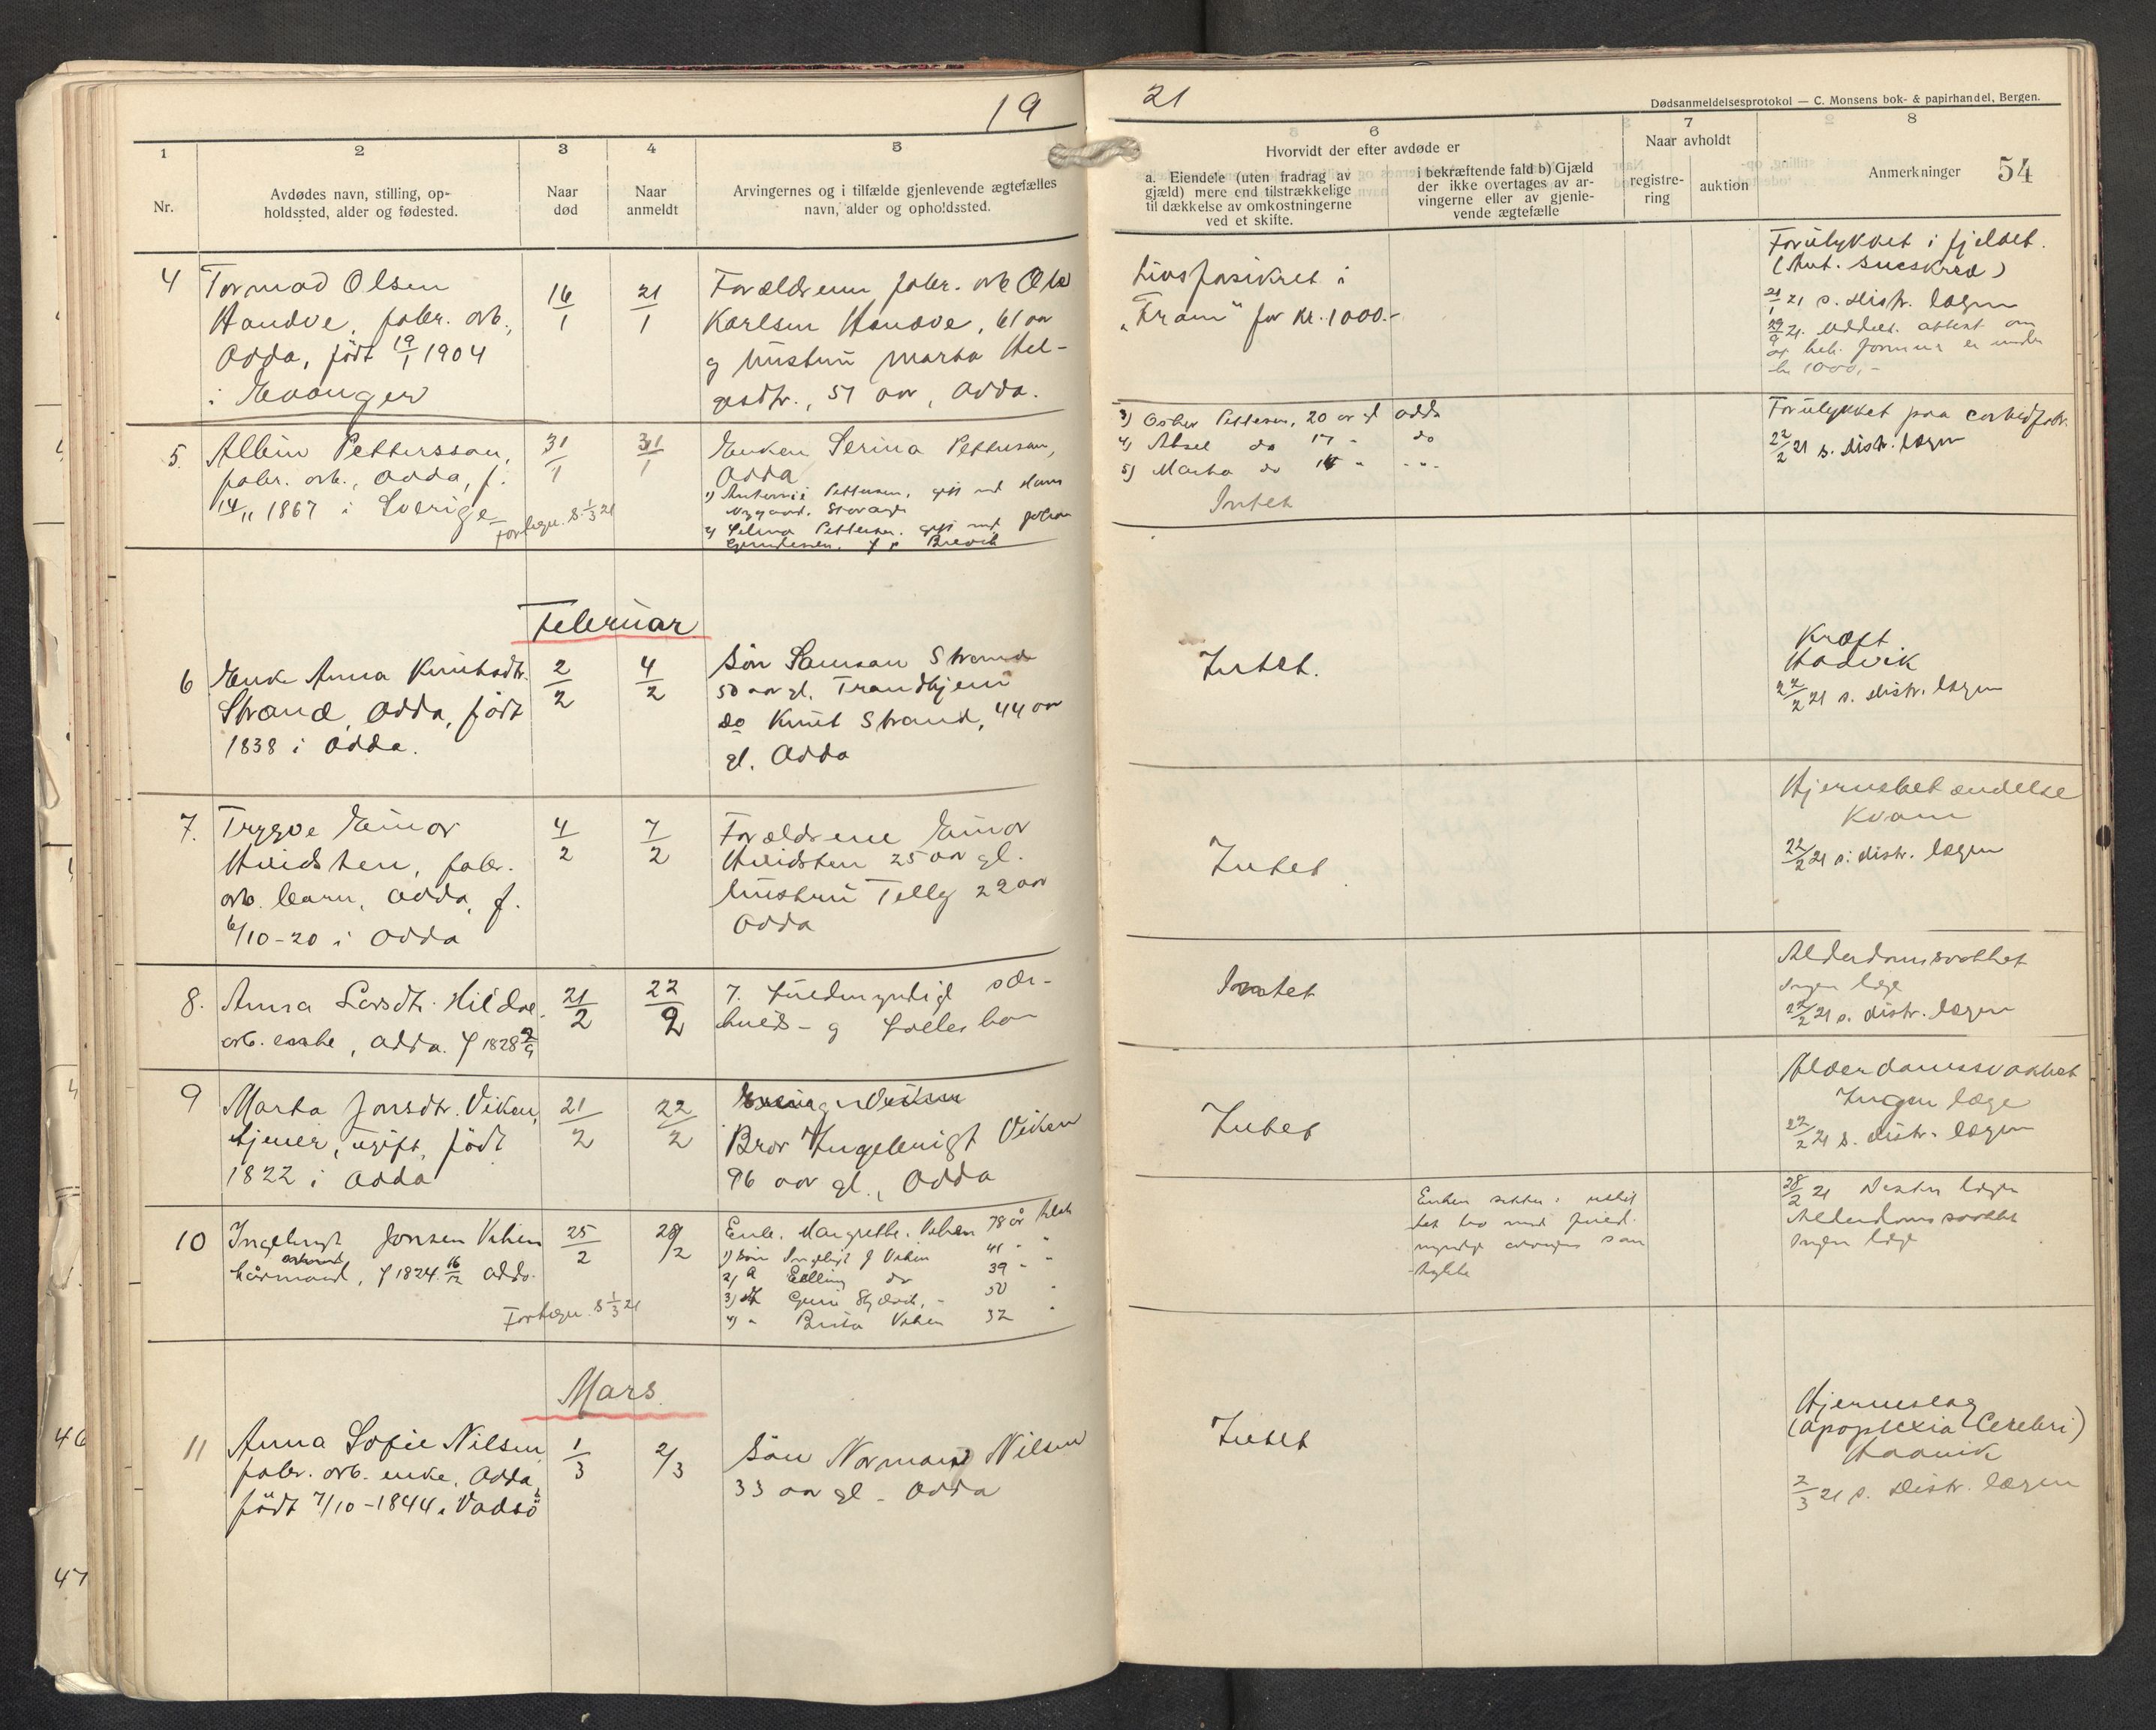 19
21
Dødsanmeldelsesprotokol — C. Monsens bok- & papirhandel, Bergen.
54
1
Nr.
2
Avdødes navn, stilling, op-
holdssted, alder og fødested.
3
Naar
død
4
Naar
anmeldt
5
Arvingernes og i tilfælde gjenlevende ægtefælles
navn, alder og opholdssted.
6
Hvorvidt der efter avdøde er
a. Eiendele (uten fradrag av
gjæld) mere end tilstrækkelige
til dækkelse av omkostningerne
ved et skifte.
i bekræftende fald b) Gjæld
der ikke overtages av ar-
vingerne eller av gjenle-
vende ægtefælle
7
Naar avholdt
registre-
ring
auktion
8
Anmerkninger
4
Tormod Olsen
Handve, fabr. arb.,
Odda, født 19/1 1904
i Evanger
16/1
21/1
Forældrene fabr. arb Ole
Karlsen Handve, 61 aar
g hustru Marta Hel-
gesdtr., 51 aar, Odda.
Livsforsikret i
"Fram" for kr. 1000.-
Forulykket i fjeldet.
(Ant. sneskred)
21/1 21 s. distr. lægen
29/9 21. uddat. attest om
at beh. formue er under
kr 1000,-
5.
Albin Pettersson,
fabr. arb., Odda, f.
14/11 1867 i Sverige
Fortegn. S 1/3 21
31/1
31/1
Enken Serina Pettersen,
Odda
1) Pettersen, gift med Hans
2) Selma Pettersen, gift med Johan
Brevik
3) Oskar Pettersen, 20 aar gl Odda
4) Aksel do 17 - do
5) Marta do 14 " - " -
Intet
Forulykket paa carbidfabr.
22/2 21 s. distr. lægen
Februar
6
Enke Anna Knutsdtr.
Strand, Odda, født
1838 i Odda.
2/2
4/2
Søn Samson Strand
50 aar gl. Trondhjem
do Knut Strand, 44 aar
gl. Odda
Intet.
Kræft
Haavik
22/2 21 s. distr. lægen
7.
Trygve Einar
Hvidsten, fabr.
arb. barn, Odda, f.
6/10-20 i Odda
4/2
7/2
Forældrene Einar
Hvidsten 25 aar gl.
hustru Telly 22 aar
Odda
Intet
Hjernebetændelse
Kvam
22/2 21 s. distr. lægen
8.
Anna Larsdtr. Hildal
arb. enke, Odda. f 1828 2/9
21/2
22/2
7. fuldmyndige sær-
kuds- g fælles barn
Intet
Alderdomssvakhet
Ingen læge
22/2 21 s. distr. lægen
9
Marta Jonsdtr. Viken,
tjener, ugift, født
1822 i Odda
21/2
22/2
Bror Ingebrigt Viken
96 aar gl., Odda
Intet
Alderdomssvakhet
Ingen læge
22/2 21 s. distr. lægen
10
Ingebrigt Jonsen Viken
kårmand, f 1824 16/12 Odda.
Fortegn. S 1/3 21
25/2
28/2
Enke. Margrethe Viken 78 år
1) Søn Ingebrigt J Viken 41 " "
2) Elling do 39 - "
3) Guri 50 "
4) " Brita Viken 32 "
Enken sitter i uskif
tet bo med fuld-
myndige arvingers sam
tykke
28/2 21 Distr lægen
Alderdomssvakhet
Ingen læge
Mars.
11
Anna Sofie Nilsen
fabr. arb. enke, Odda,
født 7/10-1844 i Vadsö
1/3
2/3
Søn Normann Nilsen
33 aar gl - Odda
Intet
Hjerneslag
(Apoplexia Cerebri)
Haavik
2/3 21 s. distr. lægen
46
47